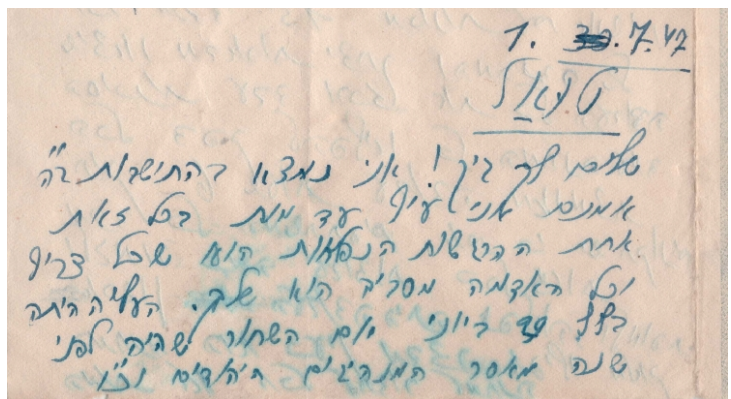 1. 7.47
שלום לך ! אני נמצא בהתישבות
אמנם אני עיף עד מות בכל זאת
אחת ההרגשות הנפלאות הוא שכל צריף
וכל האדמה מסביב הוא שלך. העליה היתה
29 ביוני יום השחור שהיה לפני
שנה מאסר המנהיגים היהודים וכו'